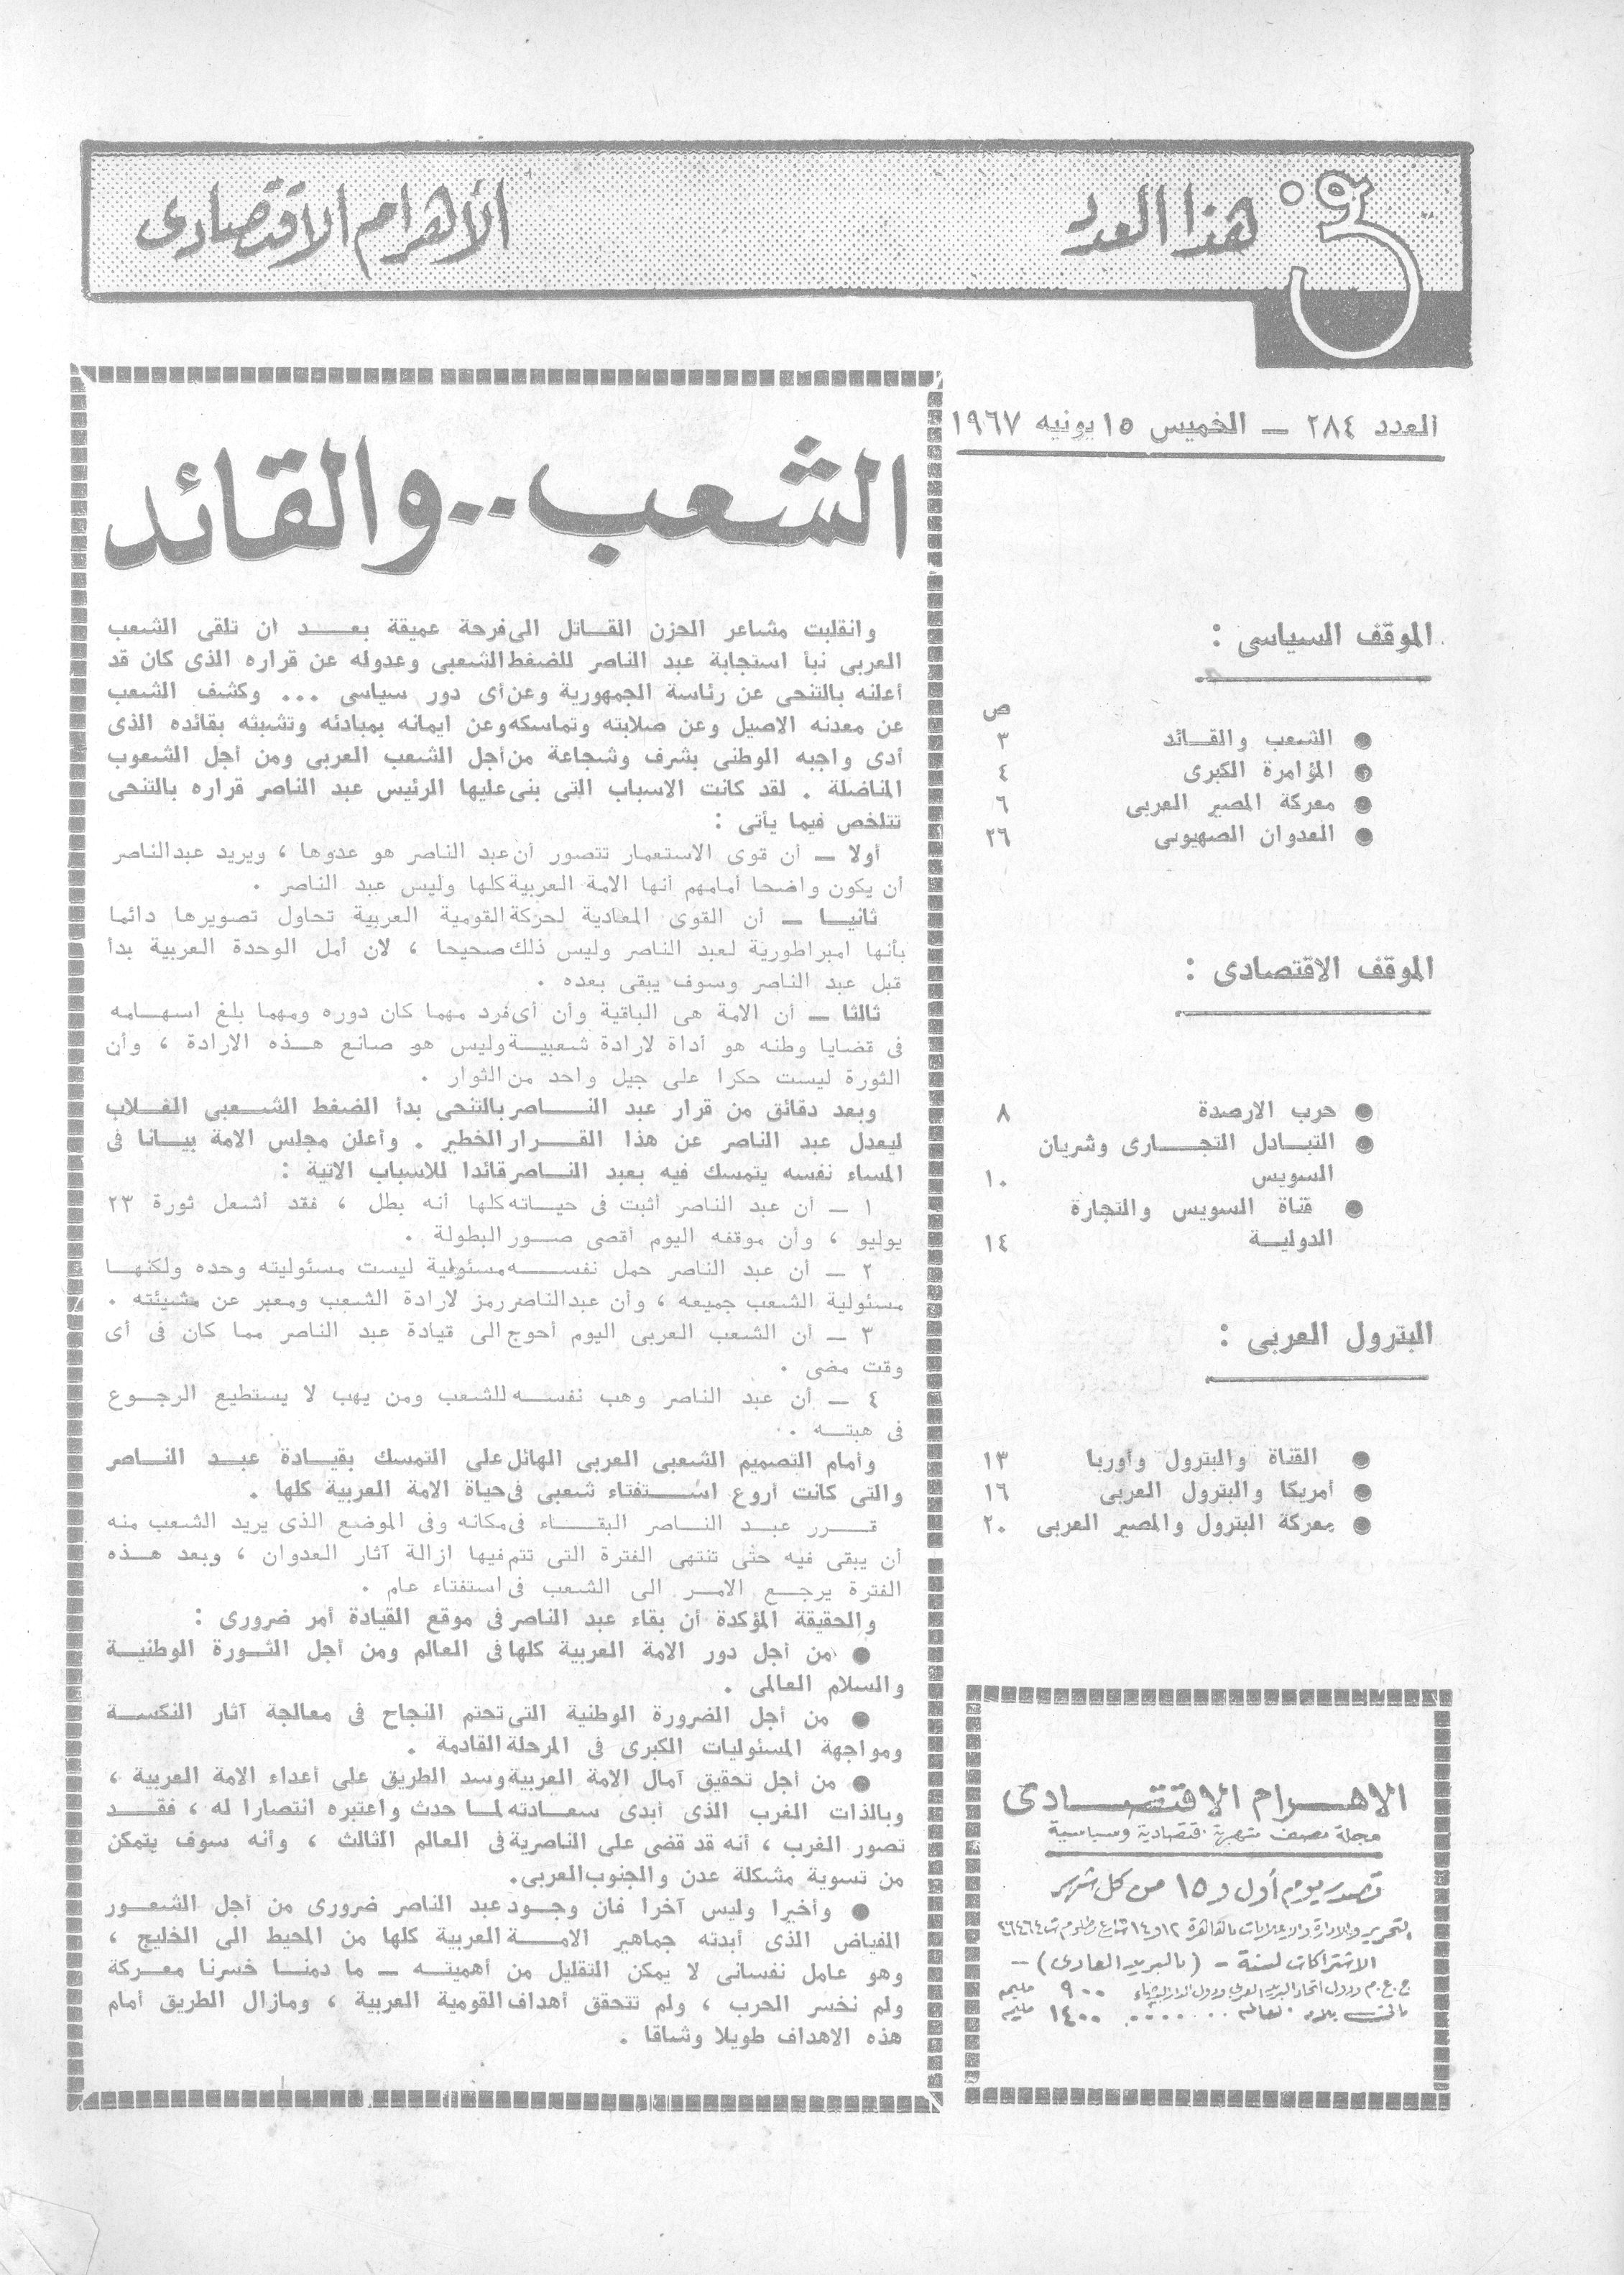 في هذا العدد
الأهرام الاقتصادى
العدد ٢٨٤ — الخميس ١٥ يونيه ١٩٦٧
الموقف السياسى :
ص
● الشعب والقـائد ٣
● المؤامرة الكبرى ٤
● معركة المصير العربى ٦
● العدوان الصهيونى ٢٦
الموقف الاقتصادى :
● حرب الارصدة ٨
● التبـادل التجـارى وشريان
السويس ١٠
● قناة السويس والتجارة
الدوليـة ١٤
البترول العربى :
● القناة والبترول وأوربا ١٣
● أمريكا والبترول العربى ١٦
● معركة البترول والمصير العربى ٢٠
الاهـرام الاقتـصـادى
مجلة نصف شهرية اقتصادية وسياسية
تصدر يوم أول و ١٥ من كل شهر
التحرير والادارة والاعلانات بالقاهرة ١٢ و ١٤ شارع مظلوم ت ٤٦٤٦٤
الاشتراكات لسنة - (بالبريد العادى) -
ج.ع.م ودول اتحاد البريد العربى ٩٠٠ مليم
باقى بلاد العالم ١٤٠٠ مليم
الشعب .. والقائد
وانقلبت مشاعر الحزن القـاتل الى فرحة عميقة بعـد ان تلقى الشعب
العربى نبأ استجابة عبد الناصر للضغط الشعبى وعدوله عن قراره الذى كان قد
أعلنه بالتنحى عن رئاسة الجمهورية وعن أى دور سياسى ... وكشف الشعب
عن معدنه الاصيل وعن صلابته وتماسكه وعن ايمانه بمبادئه وتشبثه بقائده الذى
أدى واجبه الوطنى بشرف وشجاعة من أجل الشعب العربى ومن أجل الشعوب
المناضلة . لقد كانت الاسباب التى بنى عليها الرئيس عبد الناصر قراره بالتنحى
تتلخص فيما يأتى :
أولا — أن قوى الاستعمار تتصور أن عبد الناصر هو عدوها ، ويريد عبد الناصر
أن يكون واضحا أمامهم أنها الامة العربية كلها وليس عبد الناصر .
ثانيـا — أن القوى المعادية لحركة القومية العربية تحاول تصويرها دائما
بأنها امبراطورية لعبد الناصر وليس ذلك صحيحا ، لان أمل الوحدة العربية بدأ
قبل عبد الناصر وسوف يبقى بعده .
ثالثا — أن الامة هى الباقية وأن أى فرد مهما كان دوره ومهما بلغ اسهـامه
فى قضايا وطنه هو أداة لارادة شعبيـة وليس هو صانع هـذه الارادة ، وأن
الثورة ليست حكرا على جيل واحد من الثوار .
وبعد دقائق من قرار عبد النـاصر بالتنحى بدأ الضغط الشـعبى الغـلاب
ليعدل عبد الناصر عن هذا القـرار الخطير . وأعلن مجلس الامة بيـانا فى
المساء نفسه يتمسك فيه بعبد النـاصر قائدا للاسباب الاتية :
١ — أن عبد الناصر أثبت فى حيـاته كلها أنه بطل ، فقد أشعل ثورة ٢٣
يوليو ، وأن موقفه اليوم أقصى صـور البطولة .
٢ — أن عبد الناصر حمل نفسـه مسئولية ليست مسئوليته وحده ولكنهـا
مسئولية الشعب جميعه ، وأن عبد الناصر رمز لارادة الشعب ومعبر عن مشيئته .
٣ — أن الشعب العربى اليوم أحوج الى قيادة عبد الناصر مما كان فى أى
وقت مضى .
٤ — أن عبد الناصر وهب نفسـه للشعب ومن يهب لا يستطيع الرجـوع
فى هبتـه .
وأمام التصميم الشعبى العربى الهائل على التمسك بقيـادة عبـد النـاصر
والتى كانت أروع اسـتفتاء شعبى فى حياة الامة العربية كلها .
قـرر عبـد النـاصر البقـاء فى مكانه وفى الموضع الذى يريد الشعب منه
أن يبقى فيه حتى تنتهى الفترة التى تتم فيها ازالة آثار العدوان ، وبعد هـذه
الفترة يرجـع الامـر الى الشعب فى استفتاء عام .
والحقيقة المؤكدة أن بقاء عبد الناصر فى موقع القيادة أمر ضرورى :
● من أجل دور الامة العربية كلها فى العالم ومن أجل الثـورة الوطنيـة
والسلام العالمى .
● من أجل الضرورة الوطنية التى تحتم النجاح فى معالجة آثار النكسـة
ومواجهة المسئوليات الكبرى فى المرحلة القادمة .
● من أجل تحقيق آمال الامة العربية وسد الطريق على أعداء الامة العربية ،
وبالذات الغرب الذى أبدى سعـادته لمـا حدث واعتبره انتصارا له ، فقـد
تصور الغرب ، أنه قد قضى على الناصرية فى العالم الثالث ، وأنه سوف يتمكن
من تسوية مشكلة عدن والجنوب العربى.
● وأخيرا وليس آخرا فان وجـود عبد الناصر ضرورى من أجل الشعـور
الفياض الذى أبدته جماهير الامـة العربية كلها من المحيط الى الخليج ،
وهو عامل نفسانى لا يمكن التقليل من أهميتـه — ما دمنـا خسرنا معـركة
ولم نخسر الحرب ، ولم تتحقق أهداف القومية العربية ، ومازال الطريق أمام
هذه الاهداف طويلا وشاقا .